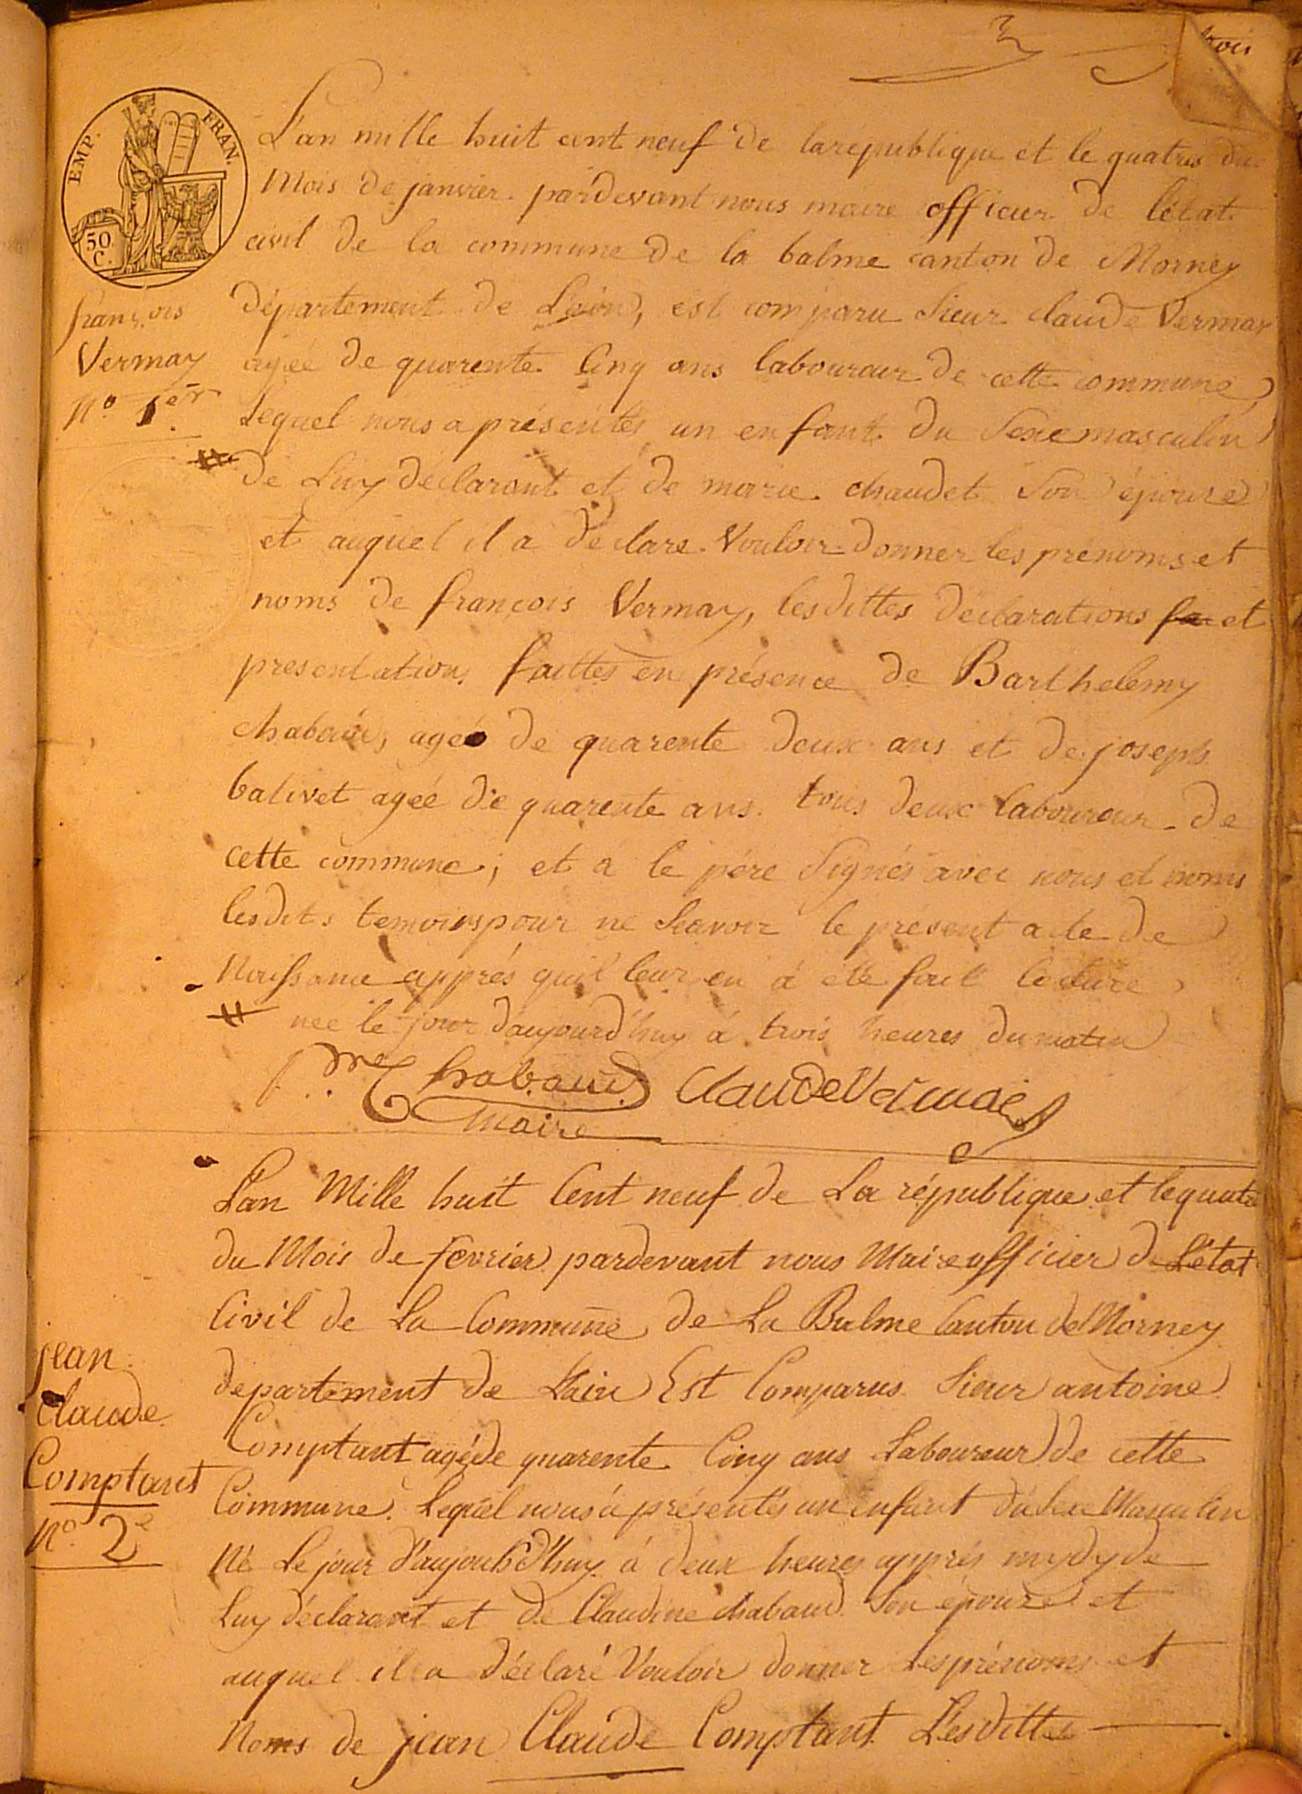 3
trois
EMP. FRAN.
50 C.
L'an mille huit cent neuf de la republique et le quatres du
Mois de janvier. pardevant nous maire officier de l'état
civil de la commune de la balme canton de Morney
département de L'ain, est comparu Sieur claude Vermay
agée de quarente Cinq ans laboureur de cette commune,
Lequel nous a présentés un enfant du Sexe masculin
de Luy déclarant et de marie chaudet Son épouse
et auquel il a déclare Vouloir donner les prenoms et
noms de françois Vermay, lesdittes déclarations fa et
presentations faittes en présence de Barthelemy
chabaud, agée de quarente deux ans et de joseph
balivet agée de quarente ans. tous deux laboureur de
cette commune; et à le pére Signés avec nous et nons
lesdits temoins pour ne Scavoir le présent acte de
Naissance apprés quil leur en à eté fait lecture,
# née le jour d'aujourd'huy à trois heures du matin
françois
Vermay
N° 1er
#
Chabaud Claude Vermai
Maire
L'an Mille huit Cent neuf de La république et le quatre
du Mois de fevrier pardevant nous Maire officier de L'état
Civil de La Commune de La Balme Canton de Morney
departement de L'ain Est Comparus Sieur antoine
Comptant agéde quarente Cinq ans Laboureur de cette
Commune. Lequel nous à présentés un enfant du Sexe Masculin
Né Le jour d'aujourd'huy à deux heures apprés mydy de
Luy déclarant et de Claudine chabaud Son épouze et
auquel il a déclaré Vouloir donner Les prénoms et
Noms de jean Claude Comptant Lesdittes
jean
Claude
Comptant
N° 2e